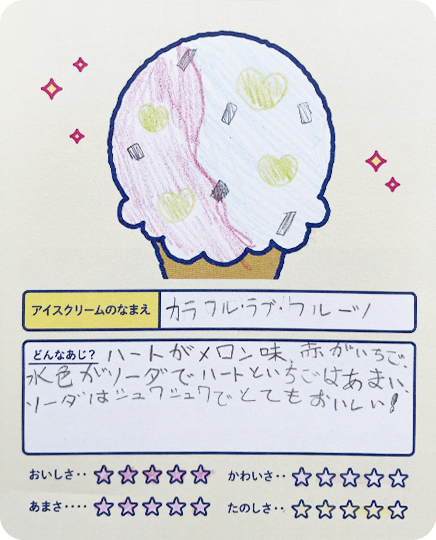 アイスクリームのなまえ
カラフル・ラブ・フルーツ
どんなあじ? ハートがメロン味、赤がいちご、
水色がソーダでハートといちごはあまい、
ソーダはジュワジュワでとてもおいしい!
おいしさ‥ ☆☆☆☆☆ かわいさ‥ ☆☆☆☆☆
あまさ‥‥ ☆☆☆☆☆ たのしさ‥ ☆☆☆☆☆